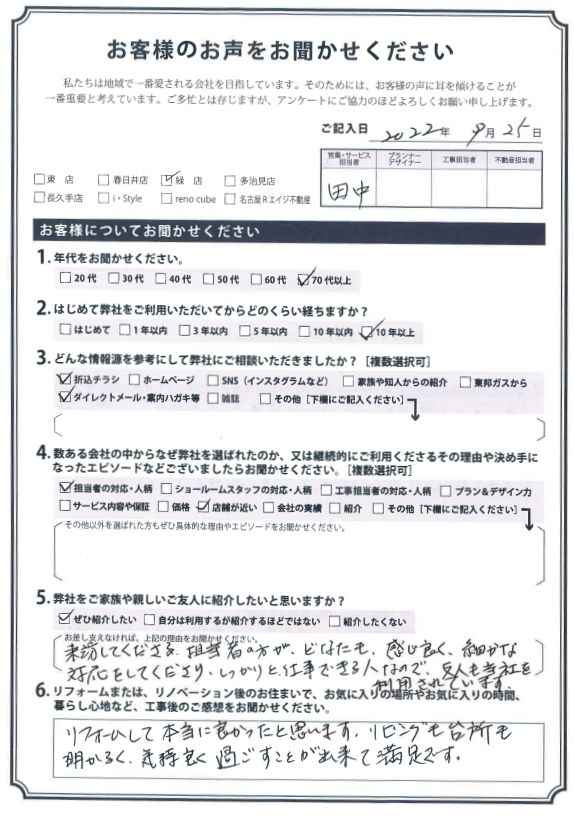 お客様のお声をお聞かせください
私たちは地域で一番愛される会社を目指しています。そのためには、お客様の声に耳を傾けることが
一番重要と考えています。ご多忙とは存じますが、アンケートにご協力のほどよろしくお願い申し上げます。
ご記入日 2022年 9月 25日
営業・サービス担当者 プランナーデザイナー 工事担当者 不動産担当者
田中
□東 店 □春日井店 ☑緑 店 □多治見店
□長久手店 □i・Style □reno cube □名古屋Rエイジ不動産
お客様についてお聞かせください
1. 年代をお聞かせください。
□20代 □30代 □40代 □50代 □60代 ☑70代以上
2. はじめて弊社をご利用いただいてからどのくらい経ちますか？
□はじめて □1年以内 □3年以内 □5年以内 □10年以内 ☑10年以上
3. どんな情報源を参考にして弊社にご相談いただきましたか？［複数選択可］
☑折込チラシ □ホームページ □SNS（インスタグラムなど） □家族や知人からの紹介 □東邦ガスから
☑ダイレクトメール・案内ハガキ等 □雑誌 □その他［下欄にご記入ください］
4. 数ある会社の中からなぜ弊社を選ばれたのか、又は継続的にご利用くださるその理由や決め手に
なったエピソードなどございましたらお聞かせください。［複数選択可］
☑担当者の対応・人柄 □ショールームスタッフの対応・人柄 □工事担当者の対応・人柄 □プラン＆デザイン力
□サービス内容や保証 □価格 ☑店舗が近い □会社の実績 □紹介 □その他［下欄にご記入ください］
その他以外を選ばれた方もぜひ具体的な理由やエピソードをお聞かせください。
5. 弊社をご家族や親しいご友人に紹介したいと思いますか？
☑ぜひ紹介したい □自分は利用するが紹介するほどではない □紹介したくない
お差し支えなければ、上記の理由をお聞かせください。
来訪してくださる、担当者の方が、どなたも、感じ良く、細やかな
対応をしてくださり、しっかりと仕事できる人なので、友人も当社を
利用されています。
6. リフォームまたは、リノベーション後のお住まいで、お気に入りの場所やお気に入りの時間、
暮らし心地など、工事後のご感想をお聞かせください。
リフォームして本当に良かったと思います。リビングも台所も
明かるく、気持良く過ごすことが出来て満足です。